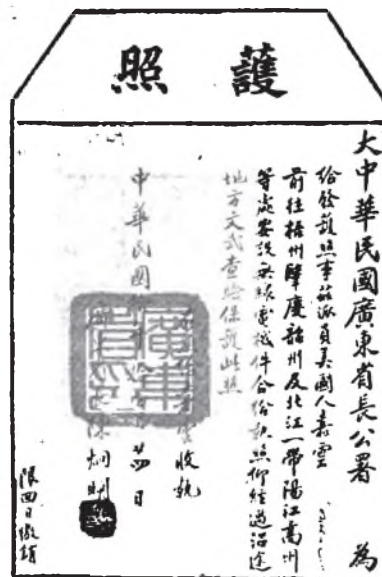 護照
大中華民國廣東省長公署 為
給發護照事茲派員美國人壽雲
前往梧州肇慶韶州及北江一帶陽江高州
等處安設無線電機件合給執照仰經過沿途
地方文武查驗保護此照
收執
中華民國 廿四日
陳炯明
限四日繳銷